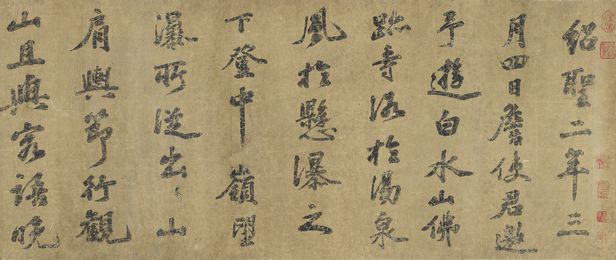 紹聖二年三
月四日詹使君邀
予遊白水山佛
跡寺浴於湯泉
風於懸瀑之
下登中嶺望
瀑所從出〻山
肩輿節行觀
山且與客語晚